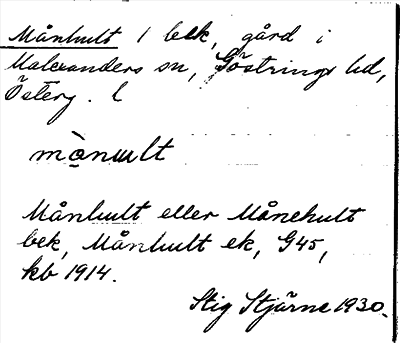 Månhult 1 bek, gård i
Malexanders sn, Göstrings hd,
Österg. l
mànult
Månhult eller Månehult
bek, Månhult ek, G45,
kb 1914.
Stig Stjärne 1930.